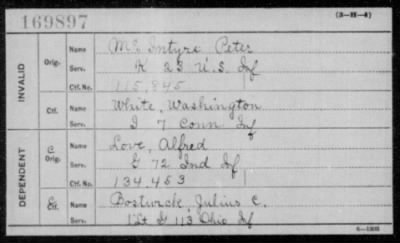 169897
(3-H-4)
INVALID
Orig.
Name McIntyre Peter
Serv. K 23 U.S. Inf
Ctf. No. 115,845
Ctf.
Name White, Washington
Serv. I 7 Conn Inf
DEPENDENT
C Orig.
Name Love, Alfred
Serv. G 72 Ind Inf
Ctf. No. 134,453
Ctf.
Name Bostwick, Julius C.
Serv. 1 Lt G 113 Ohio Inf